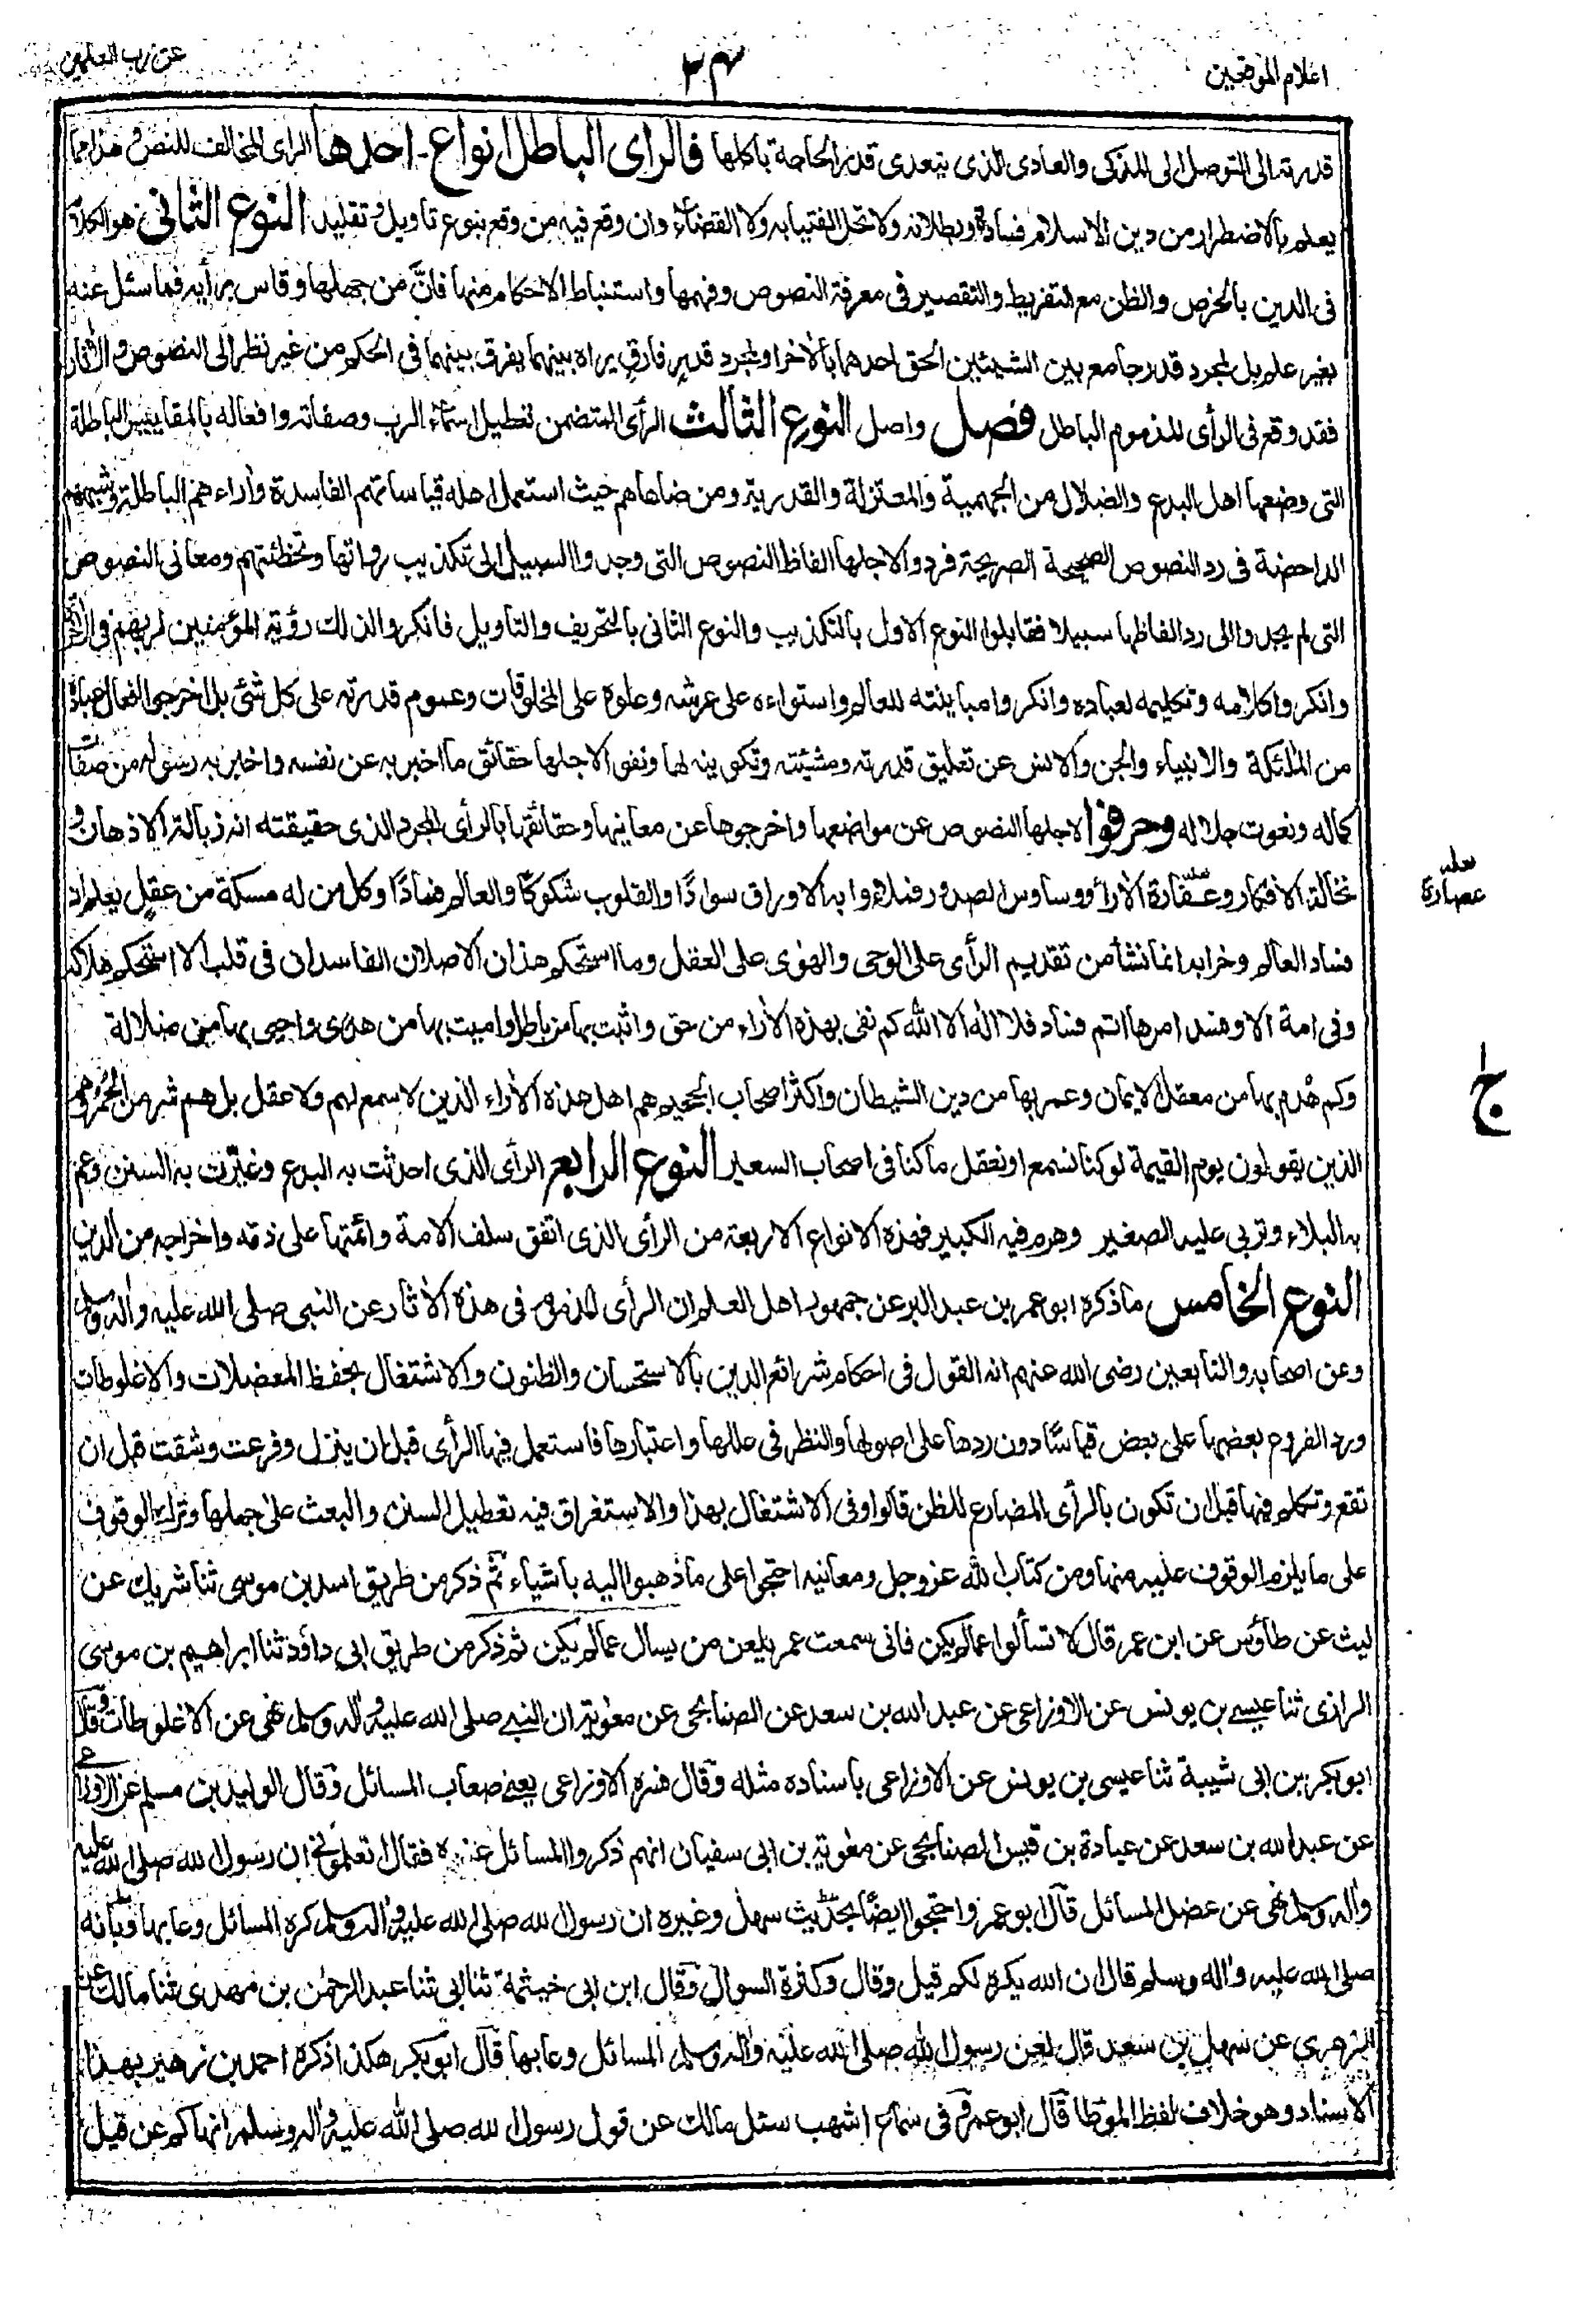 اعلام الموقعين
٢٤
عن رب العلمين
قدرته الى التوصل الى المذكى والعادى الذى يتعدى قدر الحاجة باكلها فالراى الباطل انواع - احدها الراى المخالف للنص وهذا مما
يعلم بالاضطرار من دين الاسلام فساده وبطلانه ولا تحل الفتيا به ولا القضاء وان وقع فيه من وقع بنوع تاويل وتقليد النوع الثانى هو الكلام
فى الدين بالخرص والظن مع التفريط والتقصير فى معرفة النصوص وفهمها واستنباط الاحكام منها فانّ من جهلها وقاس برأيه فما سئل عنه
بغير علم بل لمجرد قدر جامع بين الشيئين الحق احدهما بالاخر او لمجرد قدرٍ فارقٍ يراه بينهما يفرق بينهما فى الحكم من غير نظر الى النصوص والأثار
فقد وقع فى الرأى المذموم الباطل فصل واصل النوع الثالث الرأى المتضمن تعطيل اسماء الرب وصفاته وافعاله بالمقاييس الباطلة
التى وضعها اهل البدع والضلال من الجهمية والمعتزلة والقدرية ومن ضاهاهم حيث استعمل اهله قياساتهم الفاسدة وأراءهم الباطلة وشبههم
الداحضة فى رد النصوص الصحيحة الصريحة فردوا لاجلها الفاظ النصوص التى وجدوا السبيل الى تكذيب رواتها وتخطئتهم ومعانى النصوص
التى لم يجدوا الى رد الفاظها سبيلا فقابلوا النوع الاول بالتكذيب والنوع الثانى بالتحريف والتاويل فانكروا لذلك رؤية المؤمنين لربهم فى الأخرة
وانكروا كلامه وتكليمه لعباده وانكروا مباينته للعالم واستواءه على عرشه وعلوه على المخلوقات وعموم قدرته على كل شئ بل اخرجوا افعال عباده
من الملئكة والانبياء والجن والانس عن تعليق قدرته ومشيئته وتكوينه لها ونفوا لاجلها حقائق ما اخبر به عن نفسه واخبر به رسوله من صفات
كماله ونعوت جلاله وحرفوا لاجلها النصوص عن مواضعها واخرجوها عن معانيها وحقائقها بالرأى المجرد الذى حقيقته انه زبالة الاذهان و
نخالة الافكار وعفارة الأراء ووساوس الصدور فملاؤا به الاوراق سوادًا والقلوب شكوكًا والعالم فسادًا وكل من له مسكة من عقل يعلم ان
فساد العالم وخرابه انما نشأ من تقديم الرأى على الوحى والهوى على العقل وما استحكم هذان الاصلان الفاسدان فى قلب الا استحكم هلاكه
وفى امة الا وفسد امرها اتم فساد فلا اله الا الله كم نفى بهذه الأراء من حق واثبت بها من باطل واميت بها من هدى واحيى بها من ضلالة
وكم هُدم بها من معقل الايمان وعمر بها من دين الشيطان واكثر اصحاب الجحيم هم اهل هذه الأراء الذين لا سمع لهم ولا عقل بل هم شر من الحمر وهم
الذين يقولون يوم القيمة لو كنا نسمع او نعقل ما كنا فى اصحاب السعير النوع الرابع الرأى الذى احدثت به البدع وغيّرت به السنن وعم
به البلاء وتربى عليه الصغير وهرم فيه الكبير فهذه الانواع الاربعة من الرأى الذى اتفق سلف الامة وائمتها على ذمه واخراجه من الدين
النوع الخامس ما ذكره ابو عمر بن عبد البر عن جمهور اهل العلم ان الرأى المذموم فى هذه الأثار عن النبى صلى الله عليه واله وسلم
وعن اصحابه والتابعين رضى الله عنهم انه القول فى احكام شرائع الدين بالاستحسان والظنون والاشتغال بحفظ المعضلات والاغلوطات
ورد الفروع بعضها على بعض قياسًا دون ردها على اصولها والنظر فى عللها واعتبارها فاستعمل فيها الرأى قبل ان ينزل وفرعت وشقت قبل ان
تقع وتكلم فيها قبل ان تكون بالرأى المضارع للظن قالوا وفى الاشتغال بهذا والاستغراق فيه تعطيل السنن والبعث على جهلها وترك الوقوف
على ما يلزم الوقوف عليه منها ومن كتاب الله عز وجل ومعانيه احتجوا على ما ذهبوا اليه باشياء ثم ذكر من طريق اسد بن موسى ثنا شريك عن
ليث عن طاؤس عن ابن عمر قال لا تسألوا عما لم يكن فانى سمعت عمر يلعن من يسال عما لم يكن ثم ذكر من طريق ابى داؤد ثنا ابراهيم بن موسى
الرازى ثنا عيسى بن يونس عن الاوزاعى عن عبد الله بن سعد عن الصنابحى عن معوية ان النبى صلى الله عليه واله وسلم نهى عن الاغلوطات وقال
ابو بكر بن ابى شيبة ثنا عيسى بن يونس عن الاوزاعى باسناده مثله وقال فسره الاوزاعى يعنى صعاب المسائل وقال الوليد بن مسلم عن الاوزاعى
عن عبد الله بن سعد عن عبادة بن قيس الصنابحى عن معوية بن ابى سفيان انهم ذكروا المسائل عنده فقال اتعلمون ان رسول الله صلى الله عليه
واله وسلم نهى عن عضل المسائل قال ابو عمر واحتجوا ايضًا بحديث سهل وغيره ان رسول الله صلى الله عليه واله وسلم كره المسائل وعابها وبانه
صلى الله عليه واله وسلم قال ان الله يكره لكم قيل وقال وكثرة السوال وقال ابن ابى خيثمة ثنا ابى ثنا عبد الرحمن بن مهدى ثنا مالك عن
الزهرى عن سهل بن سعد قال لعن رسول الله صلى الله عليه واله وسلم المسائل وعابها قال ابو بكر هكذا ذكره احمد بن زهير بهذا
الاسناد وهو خلاف لفظ الموطا قال ابو عمر وفى سماع اشهب سئل مالك عن قول رسول الله صلى الله عليه واله وسلم انهاكم عن قيل
عصارة
ج